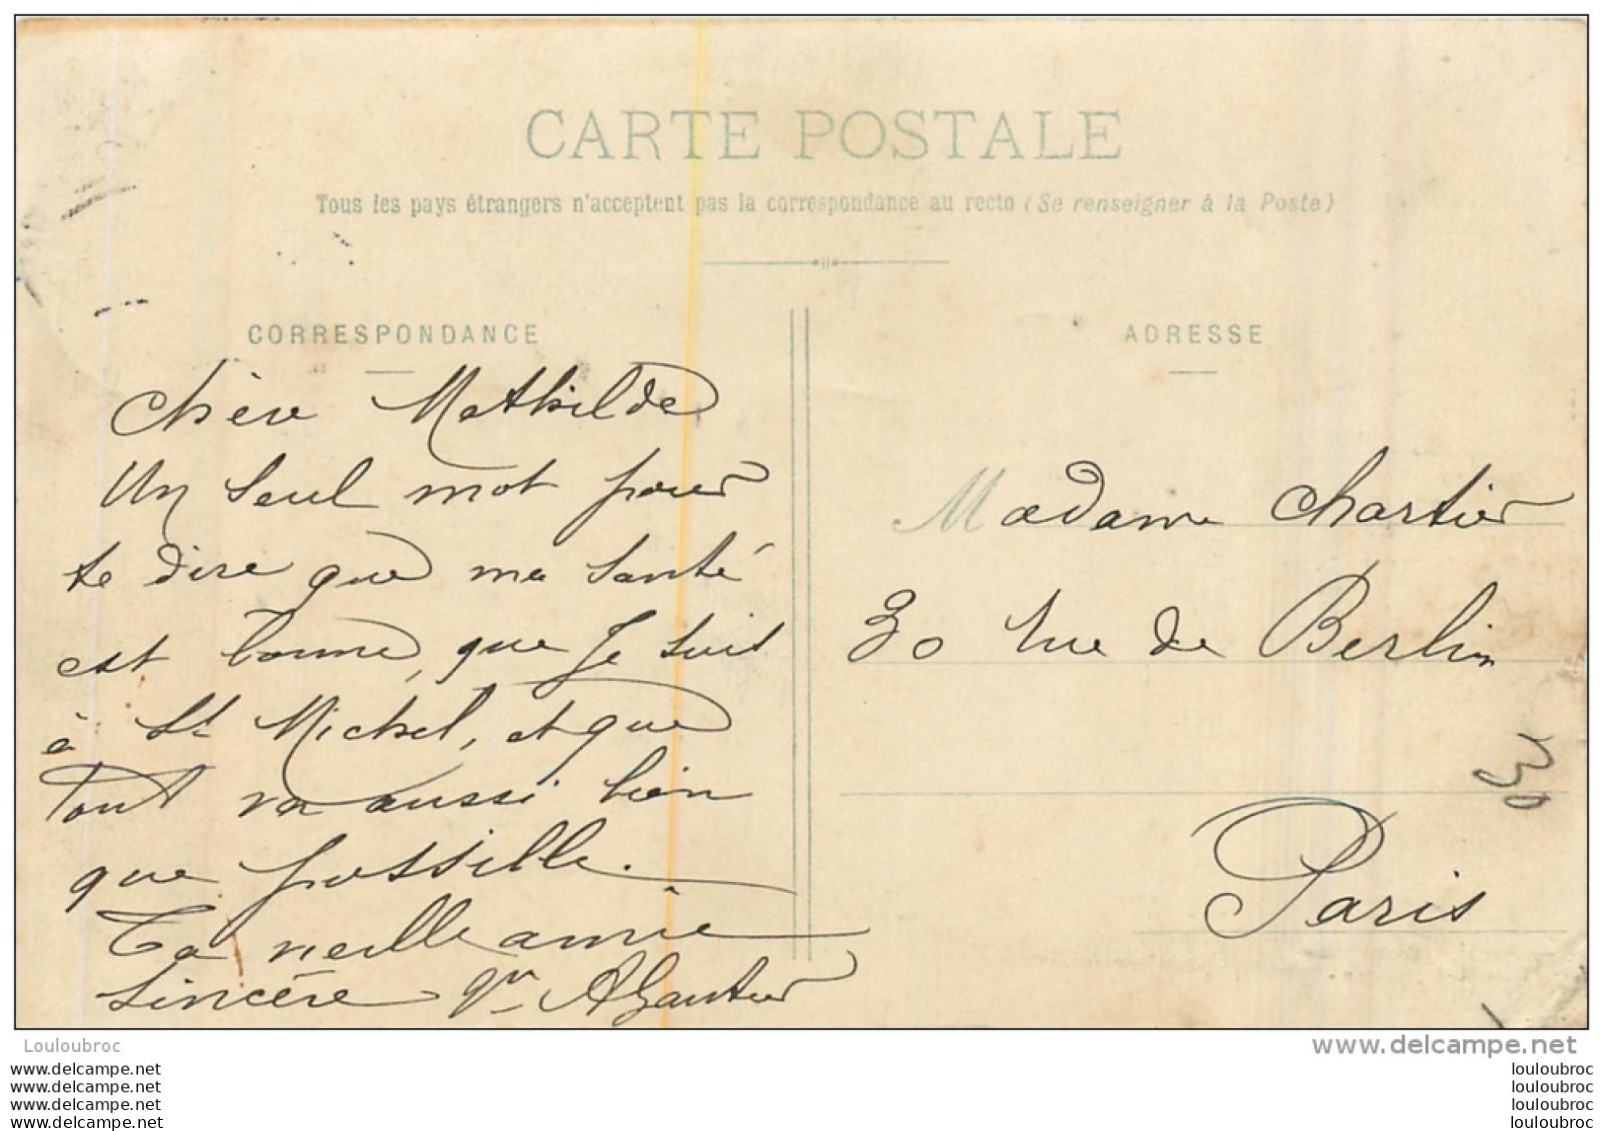 CARTE POSTALE
Tous les pays étrangers n'acceptent pas la correspondance au recto (Se renseigner à la Poste)
CORRESPONDANCE
Chère Mathilde
Un seul mot pour
te dire que ma santé
est bonne, que Je suis
à St Michel, et que
Tout va aussi bien
que possible.
Ta vieille amie
sincère Vve A Gautier
ADRESSE
Madame Chartier
30 rue de Berlin
Paris
30
Louloubroc
www.delcampe.net
www.delcampe.net
www.delcampe.net
www.delcampe.net
www.delcampe.net
louloubroc
louloubroc
louloubroc
louloubroc